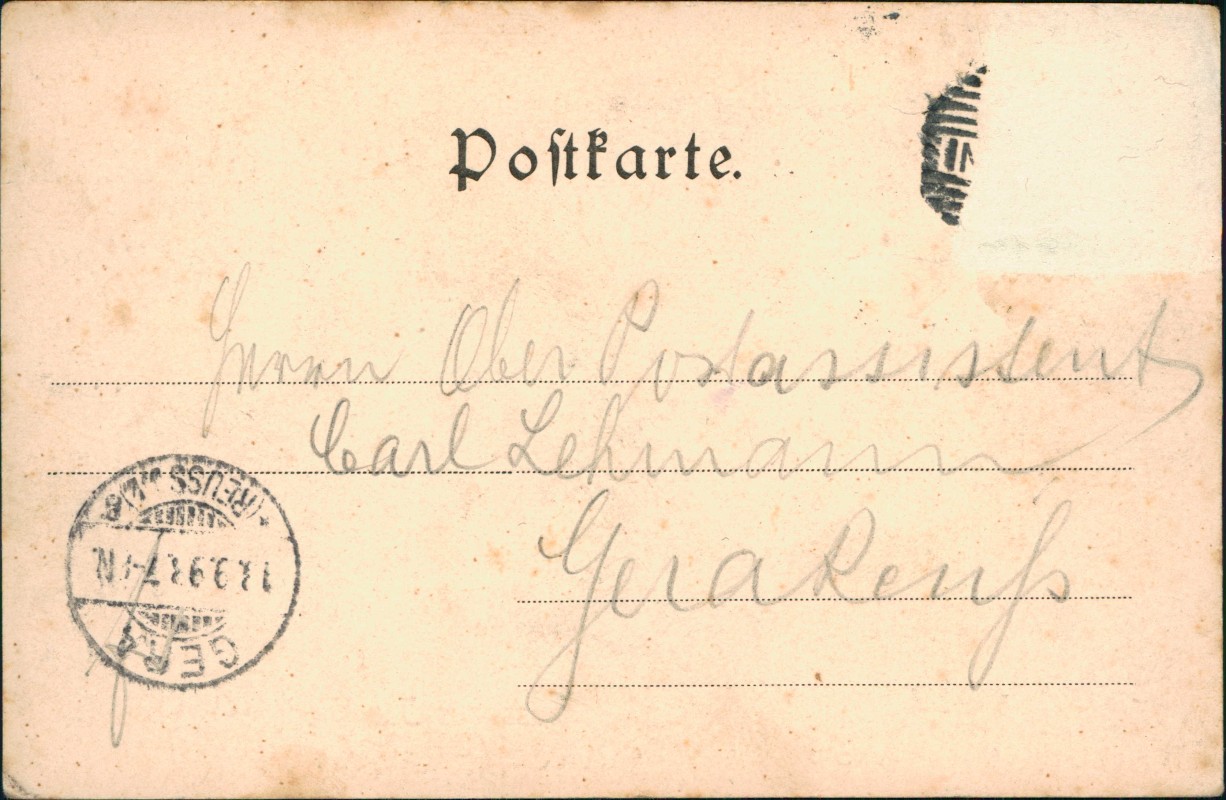 Postkarte.
Herrn Ober Postassistent
Carl Lehmann
Gera Reuß
GERA
* (REUSS j.L.) 8